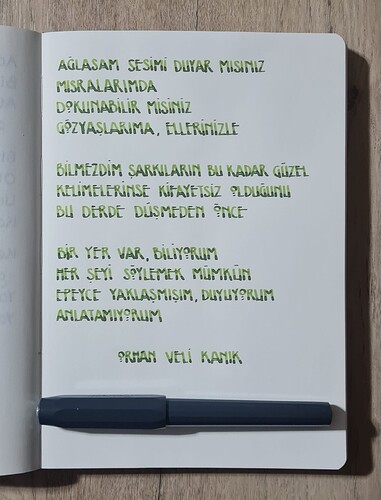 AĞLASAM SESİMİ DUYAR MISINIZ
MISRALARIMDA
DOKUNABİLİR MİSİNİZ
GÖZYAŞLARIMA, ELLERİNİZLE
BİLMEZDİM ŞARKILARIN BU KADAR GÜZEL
KELİMELERİNSE KİFAYETSİZ OLDUĞUNU
BU DERDE DÜŞMEDEN ÖNCE
BİR YER VAR, BİLİYORUM
HER ŞEYİ SÖYLEMEK MÜMKÜN
EPEYCE YAKLAŞMIŞIM, DUYUYORUM
ANLATAMIYORUM
ORHAN VELİ KANIK